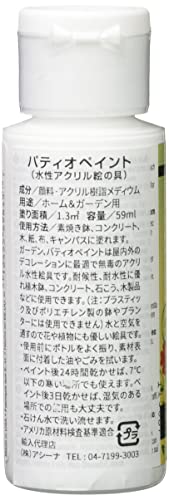 パティオペイント
(水性アクリル絵の具)
成分/顔料・アクリル樹脂メディウム
用途/ホーム&ガーデン用
塗り面積/1.3㎡ 容量/59ml
使用方法/素焼き鉢、コンクリート、
木、紙、布、キャンバスに塗れます。
ガーデン、パティオペイントは屋内外の
デコレーションに最適で無毒のアクリ
ル水性絵具です。耐候性、耐水性に優
れ植木鉢、コンクリート、石こう、木製品
などに使用できます。(注:プラスティッ
ク及びポリエチレン製の鉢やプラン
ターには使用できません)水と空気を
通すので花や植物にも優しい絵具です。
•使用前にボトルをよく振り、素材表
面に付着した油やごみを拭います。
•ペイント後24時間乾かせば、7℃
以下の寒い場所でも使えます。ペ
イント後3日乾かせば、湿気のある
場所での使用も大丈夫です。
•石けん水で洗い流せます。
•アメリカ原材料検査基準適合
輸入代理店
(株)アシーナ 04-7199-3003
プラ